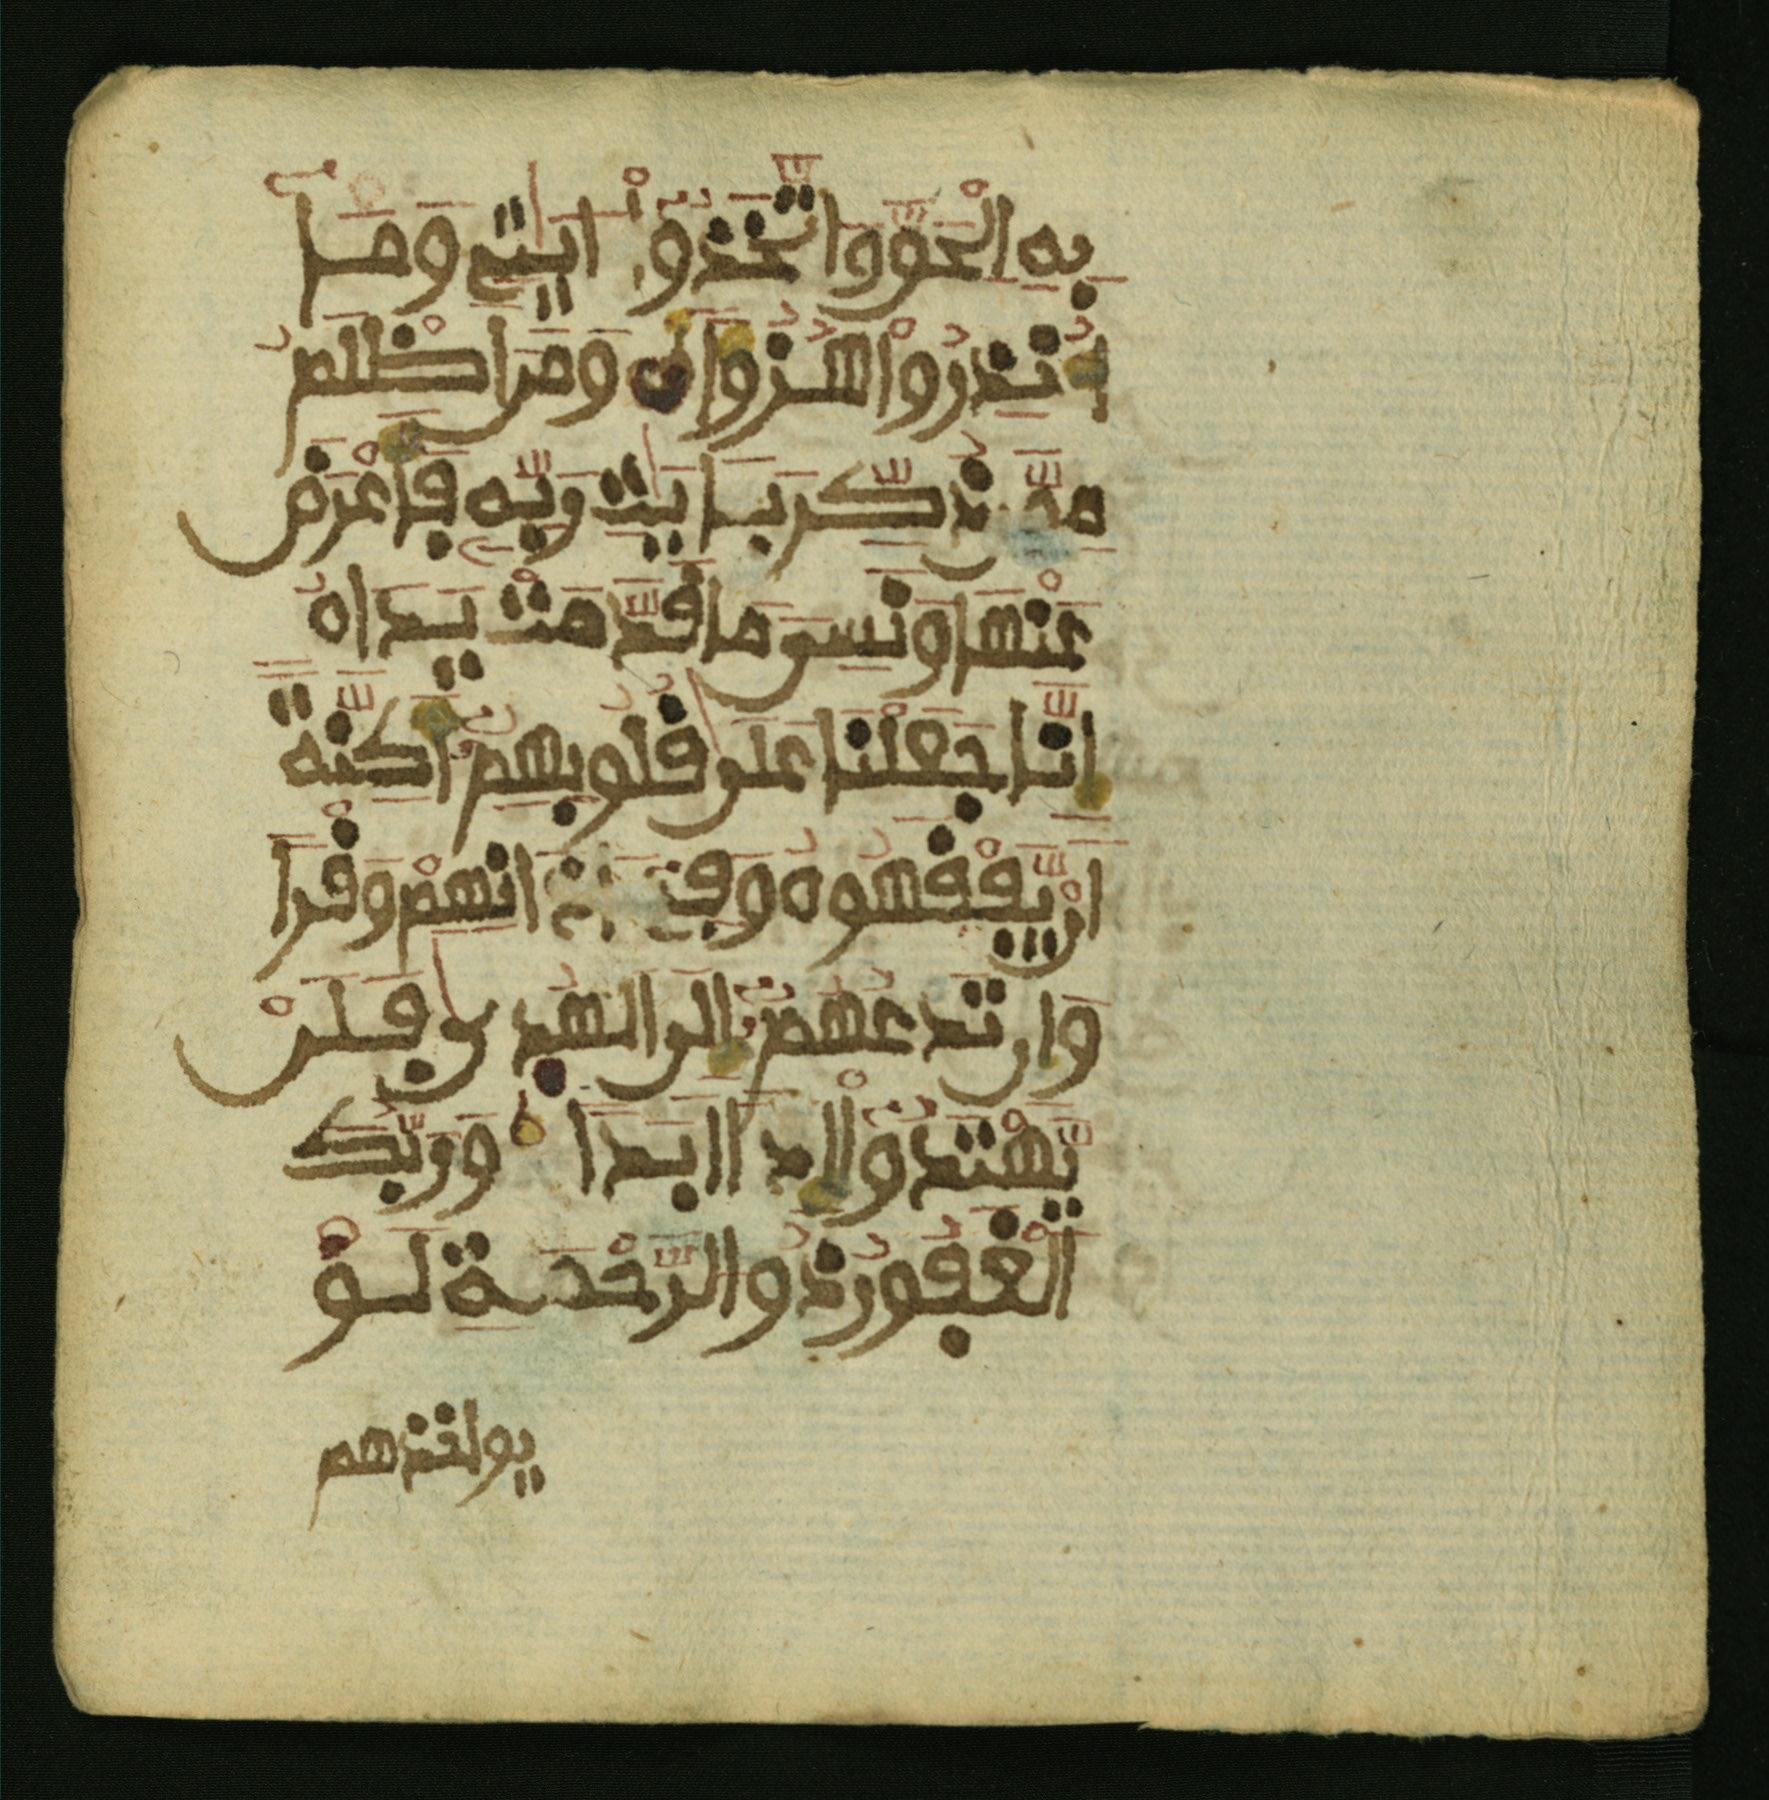 به الحق واتخذوا ايتے وما
انذروا هزوا ومن اظلم
ممن ذكر بايت ربه فاعرض
عنها ونسى ما قدمت يداه
انا جعلنا على قلوبهم اكنة
ان يفقهوه وفے اذانهم وقرا
وان تدعهم الى الهدى فلن
يهتدوا اذا ابدا وربك
الغفور ذو الرحمة لو
يواخذهم